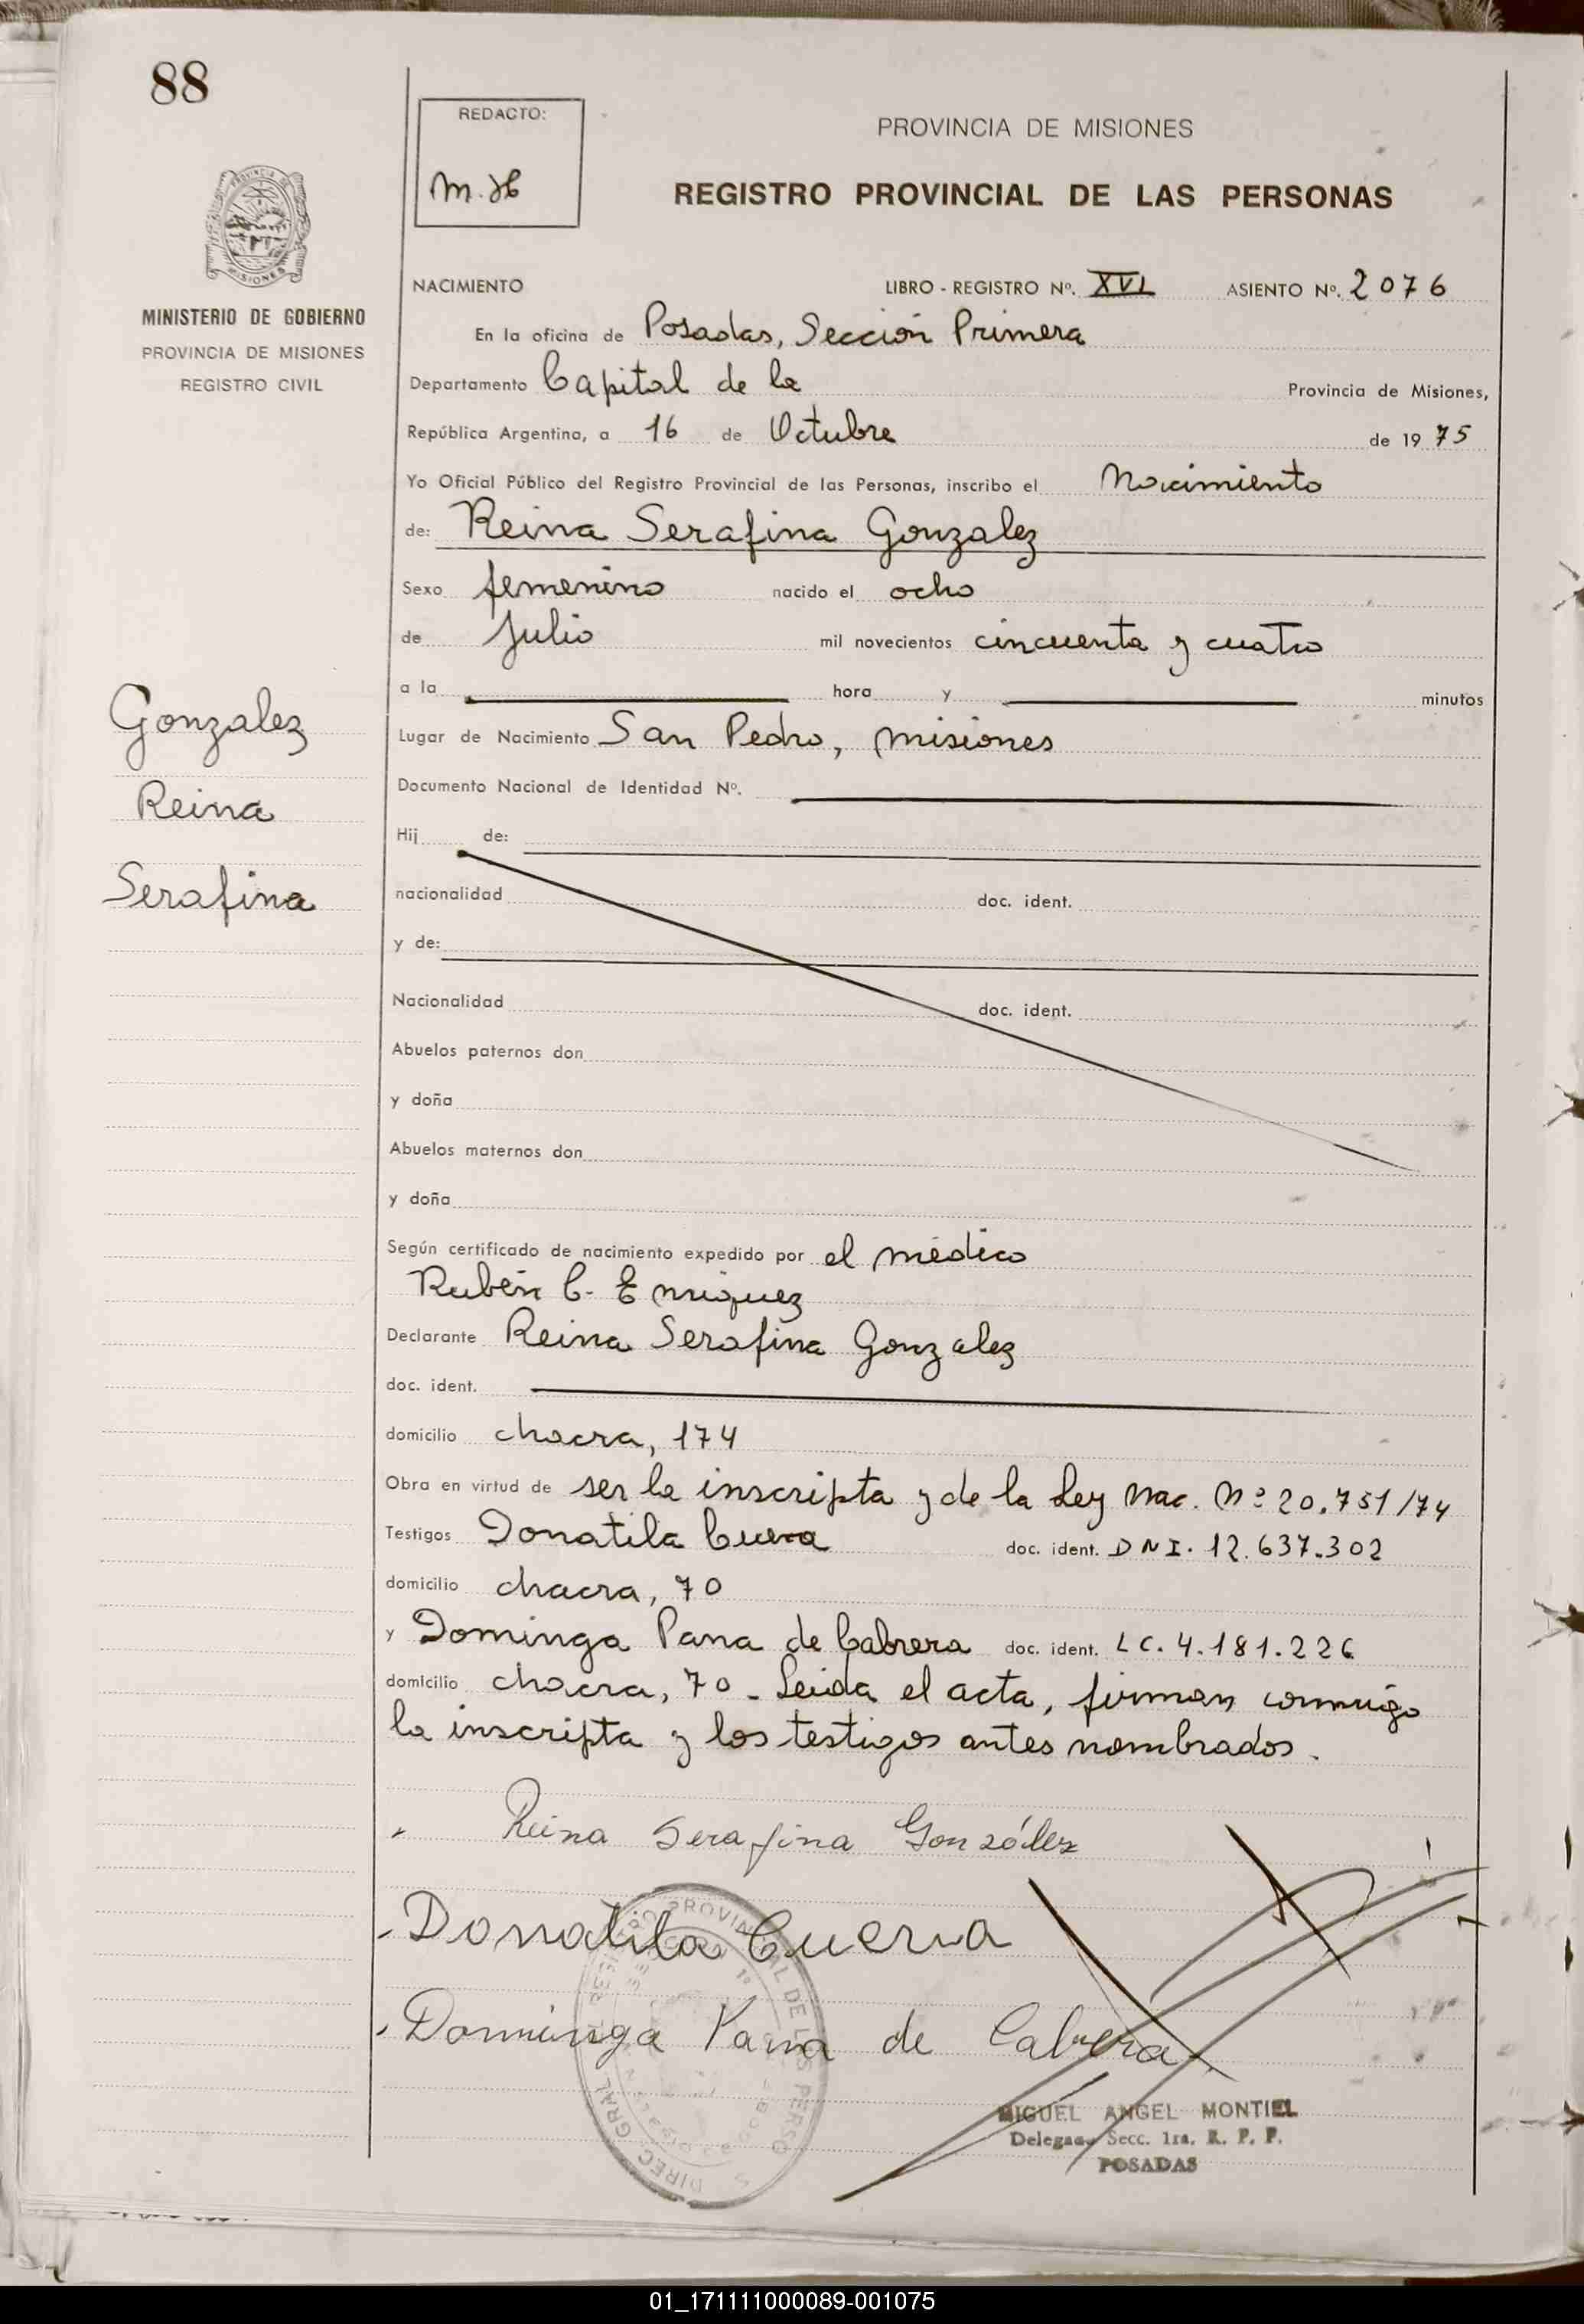 88
REDACTO:
M.H
PROVINCIA DE MISIONES
REGISTRO PROVINCIAL DE LAS PERSONAS
PROVINCIA DE
MISIONES
MINISTERIO DE GOBIERNO
PROVINCIA DE MISIONES
REGISTRO CIVIL
NACIMIENTO LIBRO - REGISTRO Nº. XVI ASIENTO Nº. 2076
En la oficina de Posadas, Sección Primera
Departamento Capital de la Provincia de Misiones,
República Argentina, a 16 de Octubre de 19 75
Yo Oficial Público del Registro Provincial de las Personas, inscribo el Nacimiento
de: Reina Serafina Gonzalez
Sexo femenino nacido el ocho
de Julio mil novecientos cincuenta y cuatro
a la hora y minutos
Gonzalez
Reina
Serafina
Lugar de Nacimiento San Pedro, Misiones
Documento Nacional de Identidad Nº.
Hij de:
nacionalidad doc. ident.
y de:
Nacionalidad doc. ident.
Abuelos paternos don
y doña
Abuelos maternos don
y doña
Según certificado de nacimiento expedido por el médico
Rubén C. Enriquez
Declarante Reina Serafina Gonzalez
doc. ident.
domicilio chacra, 174
Obra en virtud de ser la inscripta y de la Ley Nac. Nº 20.751/74
Testigos Donatila Cuera doc. ident. DNI. 12.637.302
domicilio chacra, 70
y Dominga Pana de Cabrera doc. ident. LC. 4.181.226
domicilio chacra, 70 - Leida el acta, firman conmigo
la inscripta y los testigos antes nombrados.
Reina Serafina González
Donatila Cuerva
Dominga Pana de Cabrera
DIREC. GRAL REGISTRO PROVINCIAL DE LAS PERSO
MIGUEL ANGEL MONTIEL
Delegado Secc. 1ra. R. P. P.
POSADAS
01_171111000089-001075